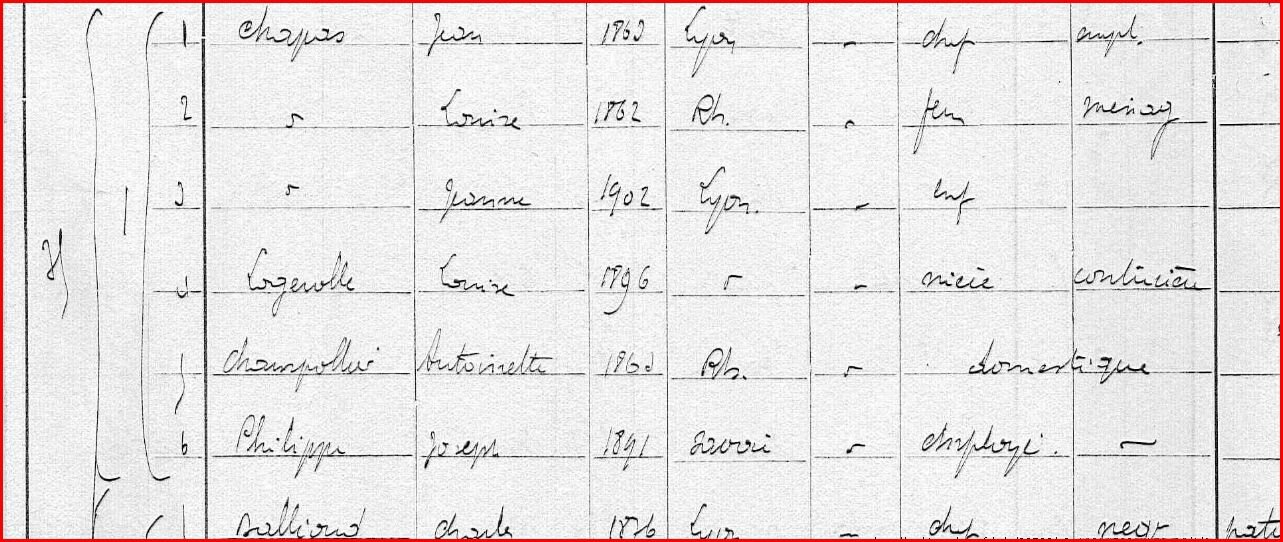 1 Chapas Jean 1863 Lyon " chef empl.
2 " Louise 1862 Rh. " fem menag
3 " Jeanne 1902 Lyon. " enf
4 Logerolle Louise 1896 " " niece couturière
5 Champollier Antoinette 1863 Rh. " domestique
6 Philippe Joseph 1891 Savoie " employé. —
1 Balliond Charles 1876 Lyon " chef neg